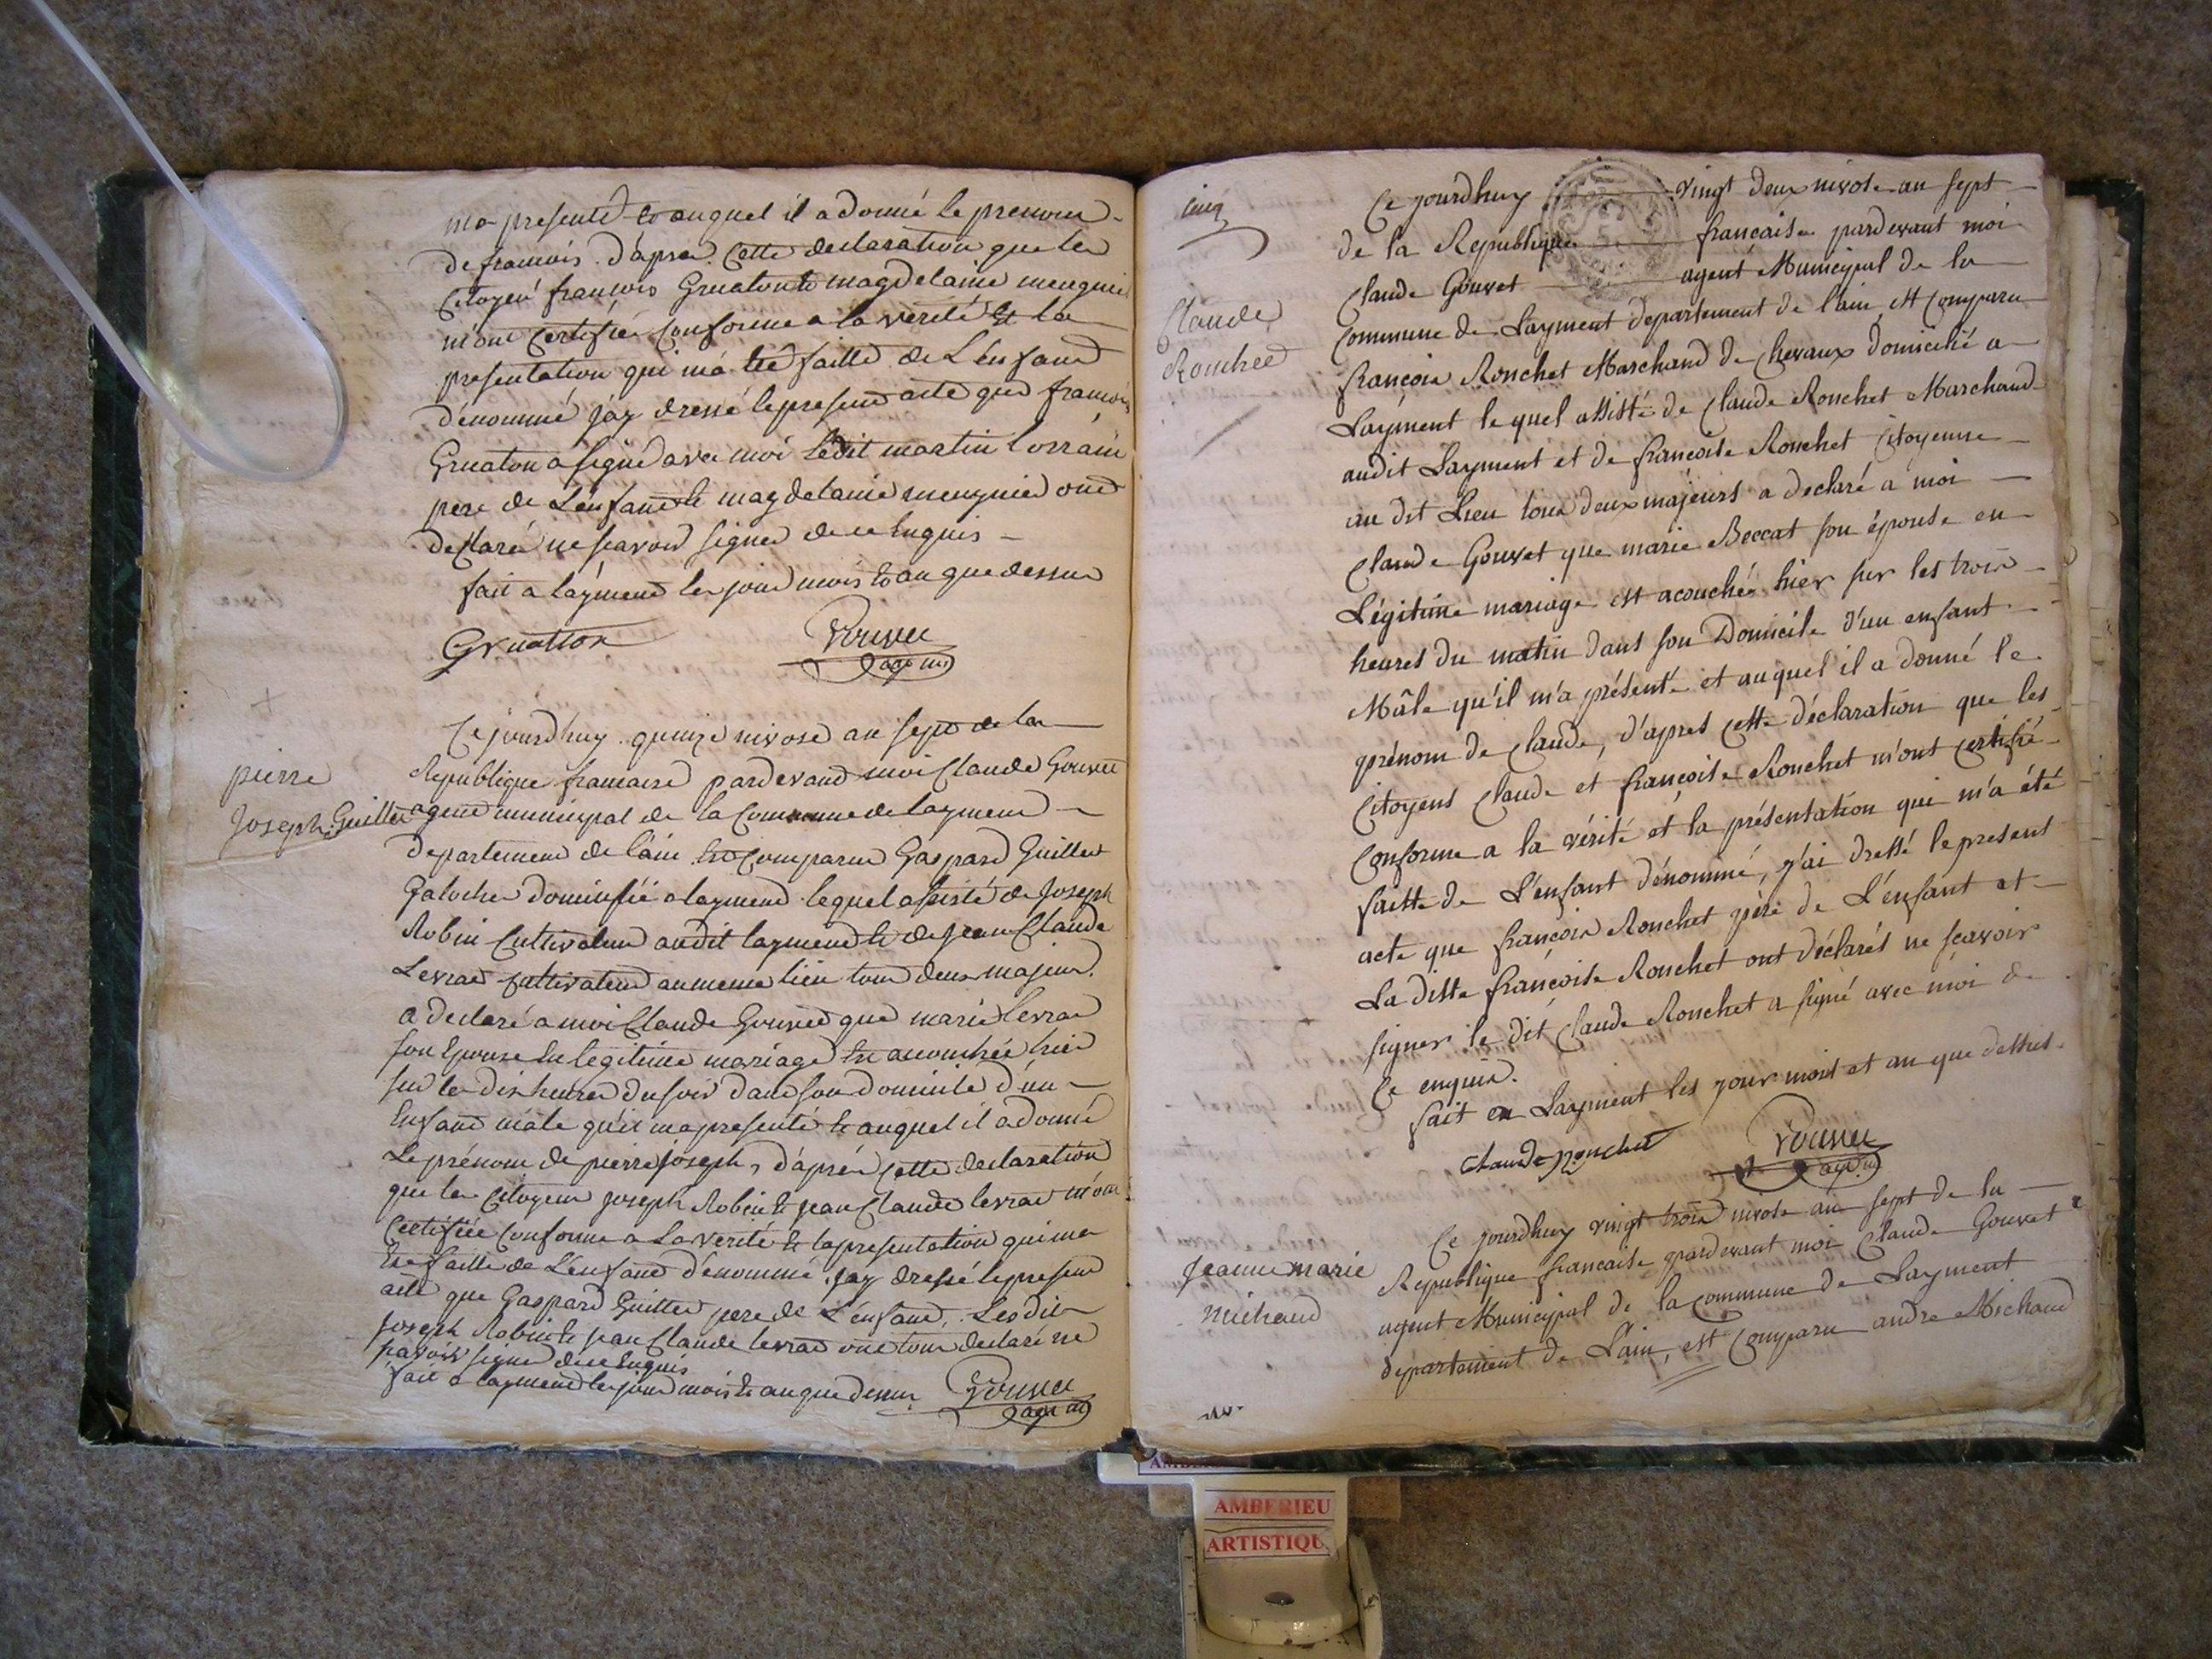 ma presenté et auquel il a donné le prenom
de francois. d'après cette declaration que les
Citoyens francois Gruaton et magdelaine meugnié
m'ont certifiée conforme a la verité et la
presentation qui m'a été faitte de L'enfant
dénommé j'ay dressé le present acte que francois
Gruaton a signé avec moi ledit martin Lorrain
pere de L'enfant et magdelaine meugnier ont
declaré ne scavoir signer de ce Enquis
fait a laÿment les jour mois et an que dessus
Gruatton Gouvet
age mu
Ce jourdhuy quinze nivose an sept de la
pierre
Republique francaise pardevant moi Claude Gouvet
Joseph Guillet
agent municipal de la Commune de layment
departement de lain est comparu Gaspard Guillet
Galocher domicilié a layment lequel assisté de Joseph
Robin Cultivateur audit layment et de jean Claude
Levrat Cultivateur au meme lieu tous deux majeurs
a declaré a moi Claude Gouvet que marie levrat
son Epouse en legitime mariage est acouchée hier
sur les dix heures du soir dans son domicile d'un
Enfant mâle qu'il m'a presenté et auquel il a donné
Le prénom de pierre joseph, d'après cette declaration
que les Citoyens joseph Robin et jean Claude levrat m'ont
Certifiée conforme a La verité et la presentation qui m'a
Eté faitte de L'enfant dénommé, j'ay dressé le present
acte que Gaspard Guillet pere de L'enfant, Lesdits
joseph Robin et jean Claude levrat ont tous declaré ne
savoir signer de ce Enquis
fait a layment les jour mois et an que dessus Gouvet
age mu
cinq
Ce jourdhuy vingt deux nivose an sept
de la Republique francaise pardevant moi
Claude Gouvet agent Municipal de la
Claude
Ronchet
Commune de Layment departement de l'ain est comparu
françois Ronchet Marchand de chevaux domicilié a
Laÿment lequel assisté de Claude Ronchet Marchand
audit Layment et de francoise Ronchet Citoyenne
au dit Lieu tous deux majeurs a declaré a moi
Claude Gouvet que marie Beccat son épouse en
Légitime mariage est acouchée hier sur les trois
heures du matin dans son Domicile d'un enfant
Mâle qu'il m'a présenté et auquel il a donné le
prénom de Claude, d'apres cette déclaration que les
Citoyens Claude et françoise Ronchet m'ont certifié
Conforme a la vérité et la présentation qui m'a été
faitte de L'enfant dénommé, j'ai dressé le present
acte que françois Ronchet père de L'enfant et
La ditte françoise Ronchet ont déclarés ne scavoir
signer le dit Claude Ronchet a signé avec moi de
Ce enquis.
fait en Layment les jour mois et an que dessus.
Claude ronchet Gouvet
age mu
Ce jourdhuy vingt trois nivose an sept de la
Jeanne marie
michaud
Republique francaise pardevant moi Claude Gouvet
agent Municipal de la Commune de Layment
departement de L'ain, est comparu andre Michaud
AMBERIEU
ARTISTIQU